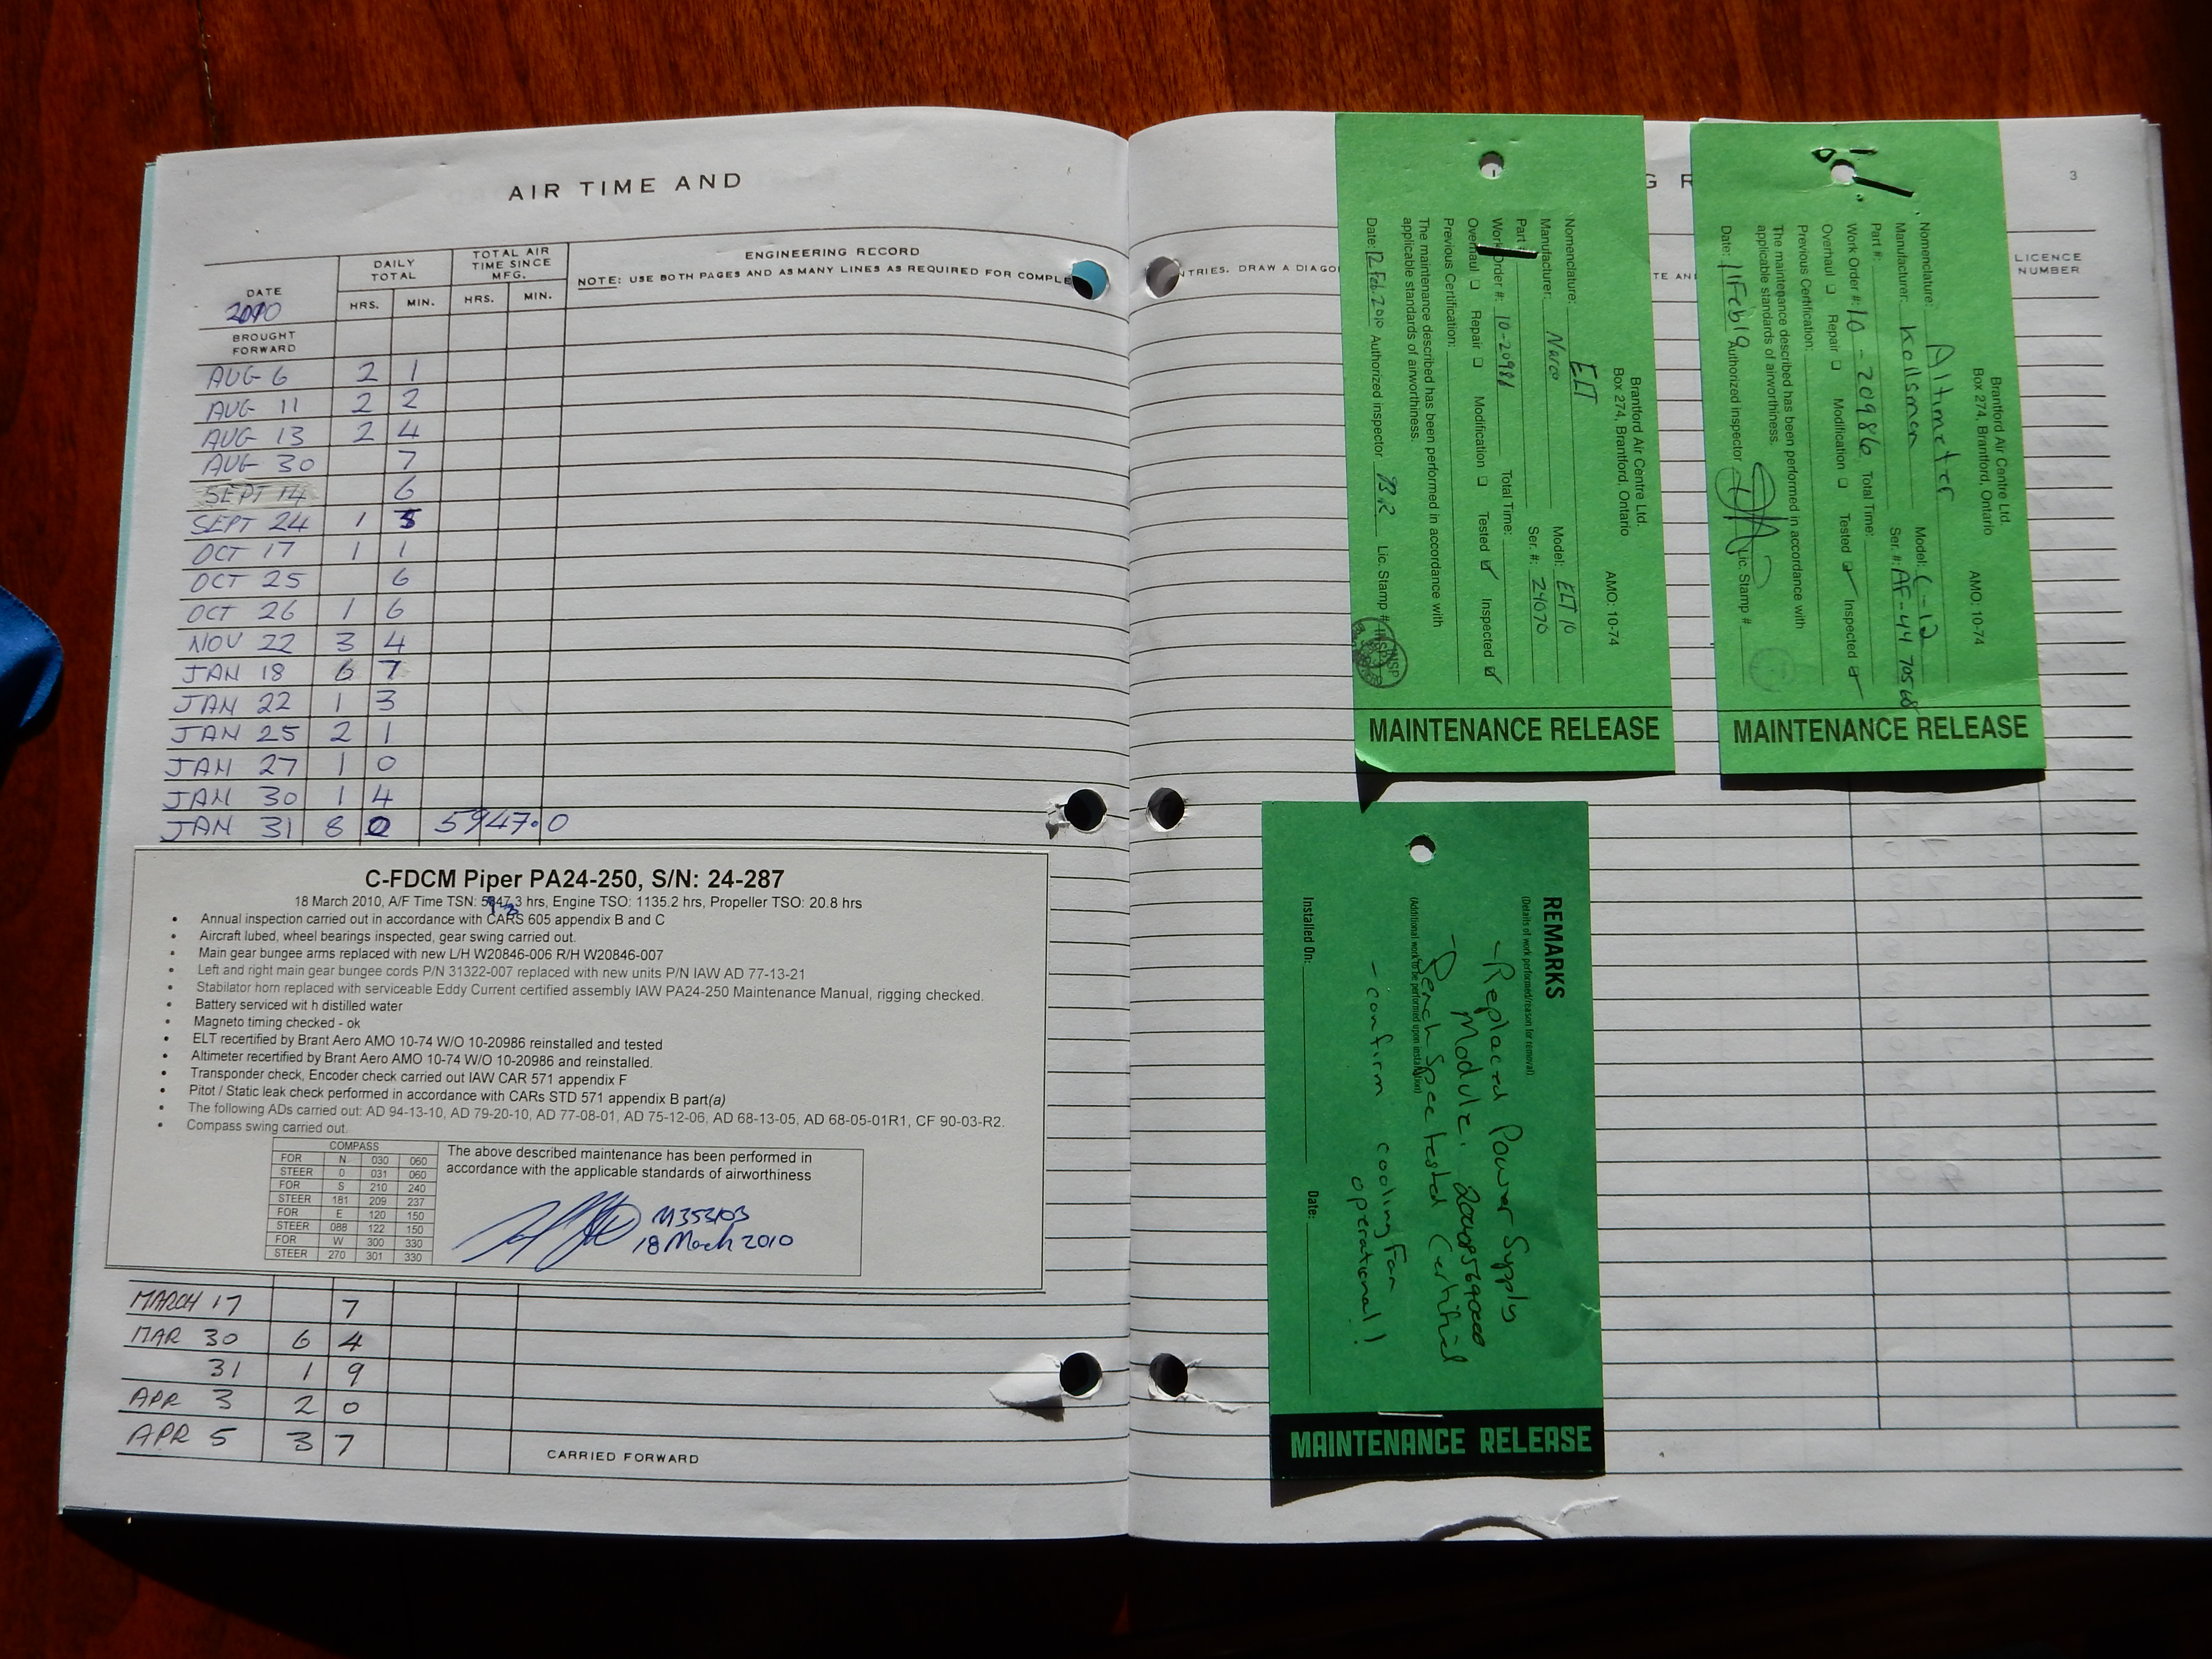 AIR TIME AND
DATE
2010
DAILY TOTAL
HRS. MIN.
TOTAL AIR TIME SINCE MFG.
HRS. MIN.
ENGINEERING RECORD
NOTE: USE BOTH PAGES AND AS MANY LINES AS REQUIRED FOR COMPLE
BROUGHT FORWARD
AUG 6 2 1
AUG 11 2 2
AUG 13 2 4
AUG 30 7
SEPT 14 6
SEPT 24 1
OCT 17 1 1
OCT 25 6
OCT 26 1 6
NOV 22 3 4
JAN 18 6 7
JAN 22 1 3
JAN 25 2 1
JAN 27 1 0
JAN 30 1 4
JAN 31 8 0 5947.0
C-FDCM Piper PA24-250, S/N: 24-287
18 March 2010, A/F Time TSN: hrs, Engine TSO: 1135.2 hrs, Propeller TSO: 20.8 hrs
• Annual inspection carried out in accordance with CARS 605 appendix B and C
• Aircraft lubed, wheel bearings inspected, gear swing carried out.
• Main gear bungee arms replaced with new L/H W20846-006 R/H W20846-007
• Left and right main gear bungee cords P/N 31322-007 replaced with new units P/N IAW AD 77-13-21
• Stabilator horn replaced with serviceable Eddy Current certified assembly IAW PA24-250 Maintenance Manual, rigging checked.
• Battery serviced wit h distilled water
• Magneto timing checked - ok
• ELT recertified by Brant Aero AMO 10-74 W/O 10-20986 reinstalled and tested
• Altimeter recertified by Brant Aero AMO 10-74 W/O 10-20986 and reinstalled.
• Transponder check, Encoder check carried out IAW CAR 571 appendix F
• Pitot / Static leak check performed in accordance with CARs STD 571 appendix B part(a)
• The following ADs carried out: AD 94-13-10, AD 79-20-10, AD 77-08-01, AD 75-12-06, AD 68-13-05, AD 68-05-01R1, CF 90-03-R2.
• Compass swing carried out.
COMPASS
FOR N 030 060
STEER 0 031 060
FOR S 210 240
STEER 181 209 237
FOR E 120 150
STEER 088 122 150
FOR W 300 330
STEER 270 301 330
The above described maintenance has been performed in
accordance with the applicable standards of airworthiness
M353103
18 March 2010
MARCH 17 7
MAR 30 6 4
31 1 9
APR 3 2 0
APR 5 3 7
CARRIED FORWARD
G R
3
NTRIES. DRAW A DIAGO
TE AN
LICENCE NUMBER
Brantford Air Centre Ltd.
Box 274, Brantford, Ontario AMO: 10-74
Nomenclature: ELT
Manufacturer: Narco Model: ELT 10
Part # Ser. #: 24070
Work Order #: 10-20986 Total Time:
Overhaul Repair Modification Tested Inspected
Previous Certification:
The maintenance described has been performed in accordance with
applicable standards of airworthiness.
Date: 12 Feb 2010 Authorized inspector BR Lic. Stamp #
INSP
MAINTENANCE RELEASE
Brantford Air Centre Ltd.
Box 274, Brantford, Ontario AMO: 10-74
Nomenclature: Altimeter
Manufacturer: Kollsman Model: C-12
Part #: Ser. #: AF-44 70568
Work Order #: 10-20986 Total Time:
Overhaul Repair Modification Tested Inspected
Previous Certification:
The maintenance described has been performed in accordance with
applicable standards of airworthiness.
Date: 11Feb10 Authorized inspector Lic. Stamp #
MAINTENANCE RELEASE
REMARKS
(Details of work performed/reason for removal)
- Replaced Power Supply
Module.
- Bench Spec tested Certified
(Additional work to be performed upon installation)
- confirm cooling Fan
operational!
Installed On: Date:
MAINTENANCE RELEASE